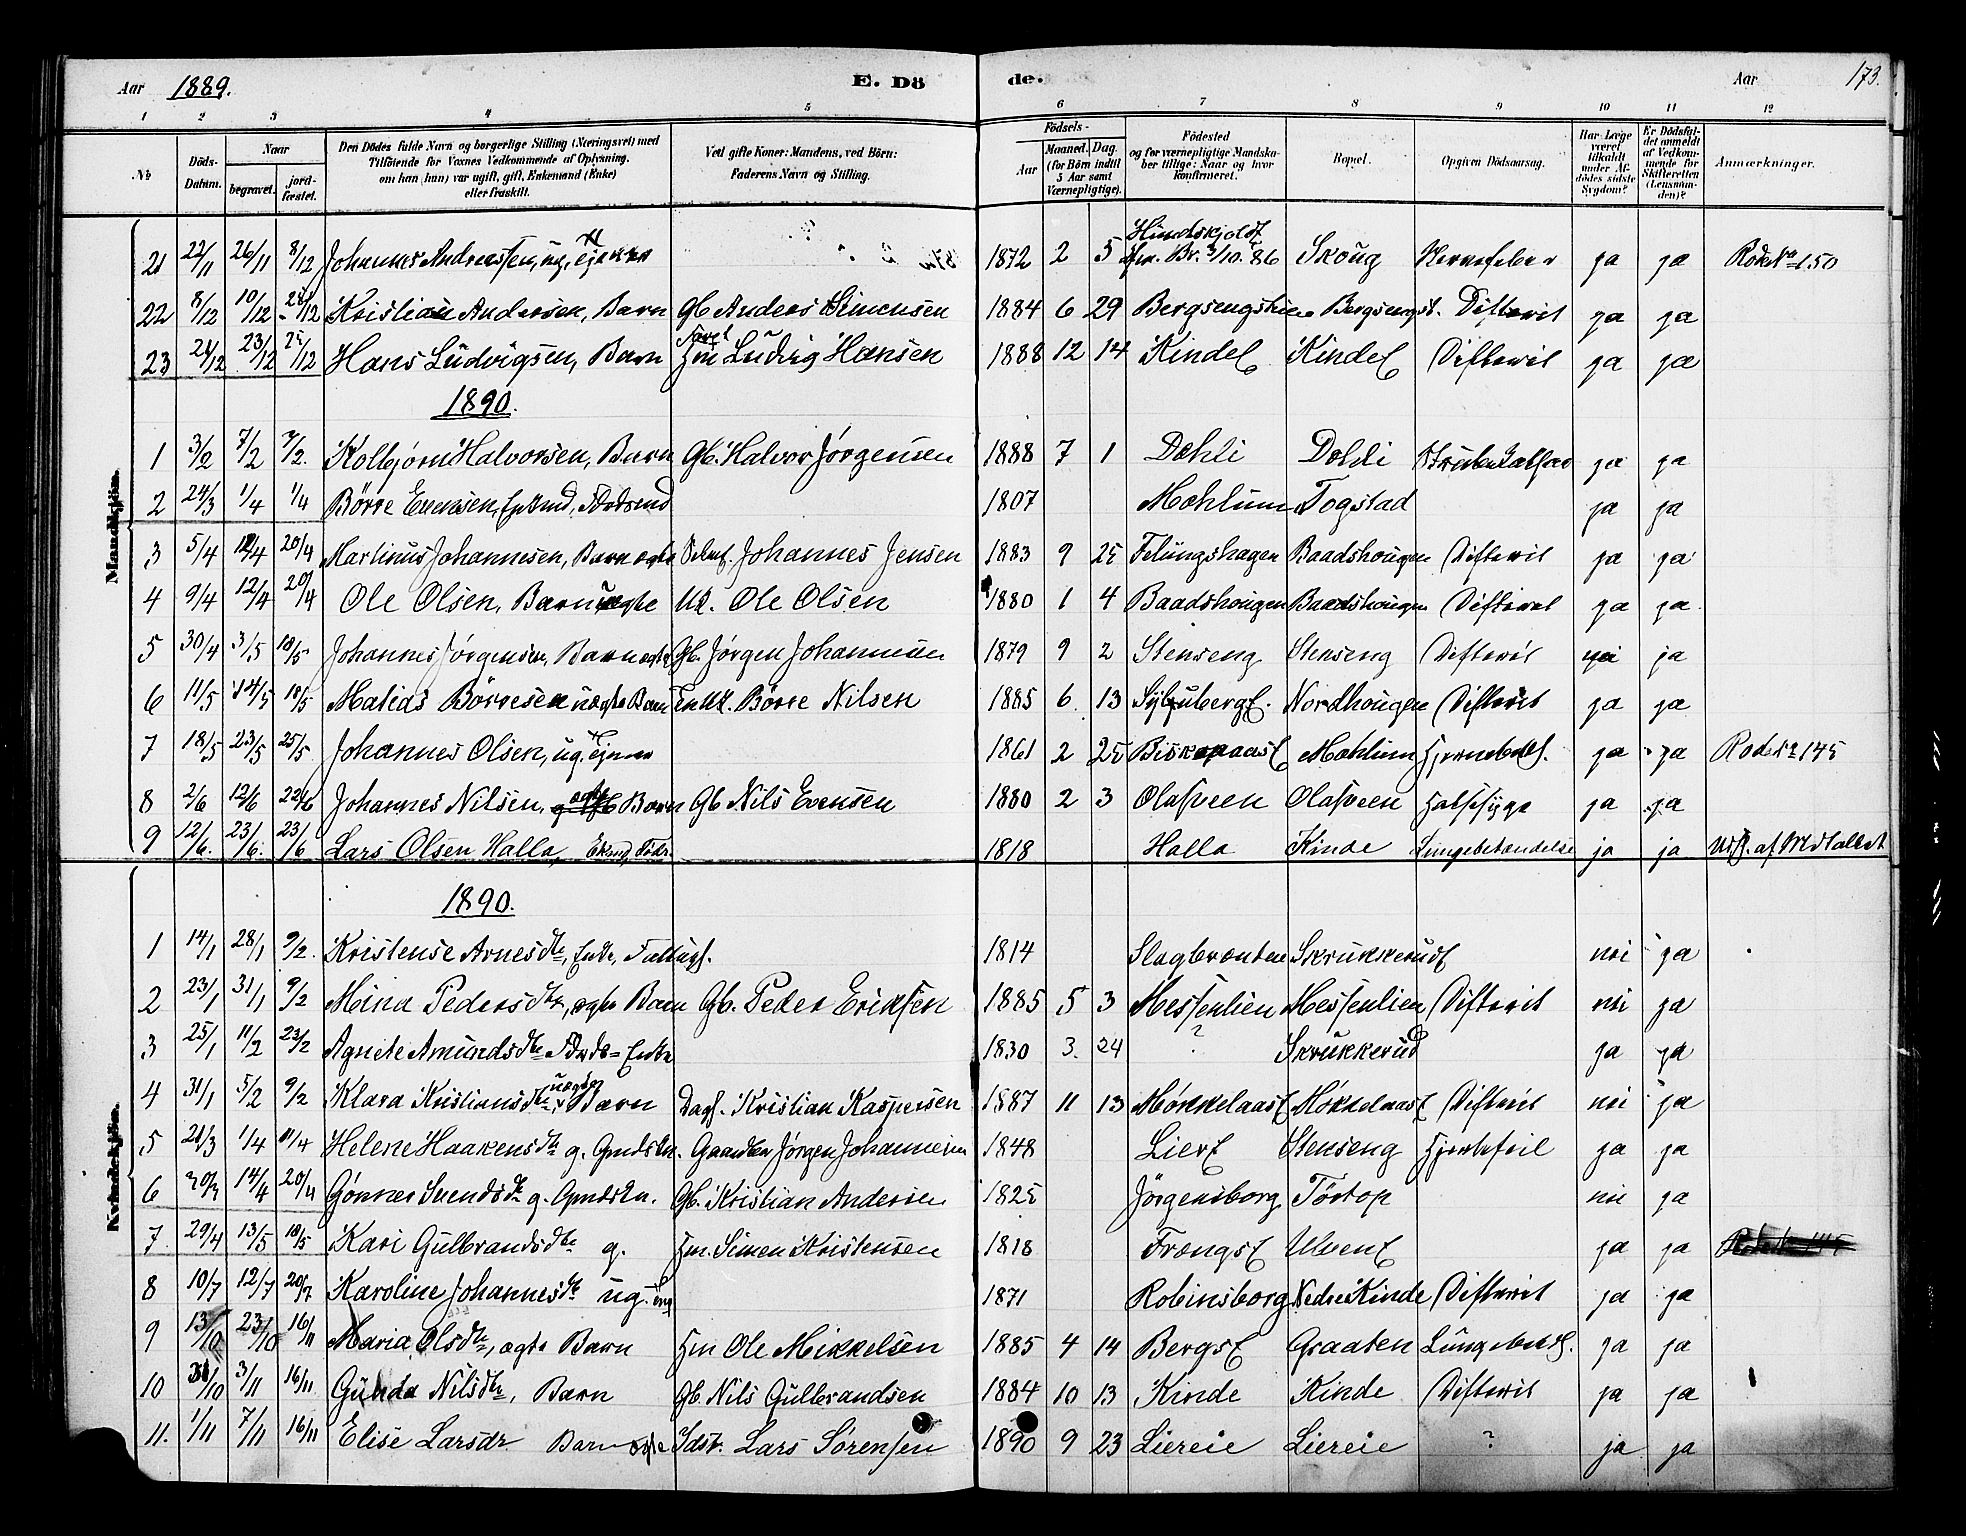 Aar 1889. E. Dö de. Aar 173.
1 2 3 4 5 6 7 8 9 10 11 12
No Döds-Datum. Naar begravet. jordfæstet. Den Dödes fulde Navn og borgerlige Stilling (Næringsvei) med Tilföiende for Voxnes Vedkommende af Oplysning, om han (hun) var ugift, gift, Enkemand (Enke) eller fraskilt. Ved gifte Koner: Mandens, ved Börn: Faderens Navn og Stilling. Födsels- Aar Maaned. Dag. (for Börn indtil 5 Aar samt Værnepligtige). Födested og for værnepligtige Mandskaber tillige: Naar og hvor konfirmeret. Bopæl. Opgiven Dödsaarsag. Har Læge været tilkaldt under Afdödes sidste Sygdom? Er Dödsfaldet anmeldt af Vedkommende for Skifteretten (Lensmanden)? Anmærkninger.
Mandkjön.
21 22/11 26/11 8/12 Johannes Andreassen, ug. 1872 2 5 Br. 3/10. 86 Skoug ja ja Rode No 150
22 8/12 10/12 Kristian Andersen, Barn Gb Anders Simensen 1884 6 29 Difterit ja ja
23 21/12 23/12 Hans Ludvigsen, Barn Hm Ludvig Hansen 1888 12 14 Kinde Kinde Difterit ja ja
1890.
1 3/2 7/2 9/2. Kolbjørn Halvorsen, Barn Gb. Halvor Jørgensen 1888 7 1 Dehli Dehli ja ja
2 24/3 1/4 1/4 Börre Evensen, 1807 Mohlum Togstad ja ja
3 5/4 20/4 Martinus Johannesen, Barn ægte Johannes Jensen 1883 9 25 Felungshagen Baadshougen Difterit ja ja
4 9/4 12/4 20/4 Ole Olsen, Barn uægte Uk. Ole Olsen 1880 1 4 Baadshougen Baadshougen Difterit ja ja
5 30/4 3/5 18/5 Johannes Jørgensen, Barn ægte Gb. Jørgen Johannesen 1879 9 2 Stenseng Stenseng Difterit nei ja
6 11/5 14/5 18/5 Matias Börresen uægte Barn Börre Nilsen 1885 6 13 Nordhougen Difterit ja ja
7 18/5 23/5 25/5 Johannes Olsen, ug. 1861 2 25 Mohlum ja ja Rode No 145
8 2/6 12/6 22/6 Johannes Nilsen, ægte Barn Gb Nils Evensen 1880 2 3 Olasveen Olasveen Halssyge ja ja
9 12/6. 23/6. 23/6 Lars Olsen Halla, 1818 Halla Kinde Lungebetændelse ja ja
Kvindekjön.
1890.
1 14/1 28/1 9/2. Kristense Arnesdtr, Enke, 1814 Slagbraaten nei ja
2 23/1 31/1 9/2 Mina Pedersdtr, ægte Barn Gb. Peder Eriksen 1885 5 3 Messenlien Messenlien Difterit nei ja
3 25/1 11/2 23/2 Agnete Amundsdtr Enke 1830 3. 24 ? Skrukkerud ja ja
4 31/1 5/2 9/2 Klara Kristiansdtr, uægte Barn Dagl. Kristian Kaspersen 1887 11 13 Difterit nei ja
5 21/3 1/4 11/4 Helene Haakensdtr g. Jørgen Johannesen 1848 Stenseng Hjertefeil ja ja
6 14/4 20/4 Gønner Svendsdtr g. Gb. Kristian Andersen 1825 Jörgensborg Törtop nei ja
7 29/4 13/5 18/5 Kari Gulbrandsdtr g. Hm. Simen Kristensen 1818 ja ja
8 10/7 12/7 20/7 Karoline Johannesdtr ug. 1871 Robinsborg Nedre Kinde Difterit ja ja
9 13/10 23/10 16/11 Maria Olsdtr, ægte Barn Hm Ole Mikkelsen 1885 4 14 Graaten ja ja
10 31/10 3/11 16/11 Gunda Nilsdtr, Barn Gb. Nils Gulbrandsen 1884 10 13 Kinde Kinde Difterit ja ja
11. 1/11 7/11 16/11 Elise Larsdr Barn ægte Lars Sörensen 1890 9 23 Liereie Liereie ? ja ja